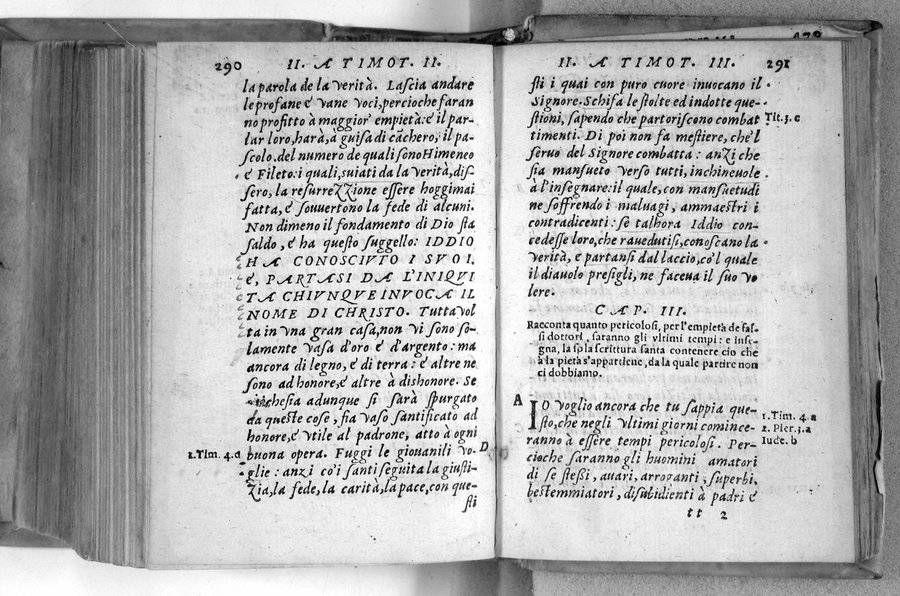 290 II. A TIMOT. II.
la parola de la verità. Lascia andare
le profane é vane voci, percioche faran
no profitto à maggior' empietà: é il par-
lar loro, harà, à guisa di cachero, il pa-
scolo. del numero de quali sono Himeneo
é Fileto: i quali, sviati da la verità, dis-
sero, la resurrezzione essere hoggimai
fatta, é souvertono la fede di alcuni.
Non dimeno il fondamento di Dio sta
saldo, é ha questo suggello: IDDIO
HA CONOSCIVTO I SVOI.
é, PARTASI DA L'INIQVI
TA CHIVNQVE INVOCA IL
NOME DI CHRISTO. Tutta vol
ta in vna gran casa, non vi sono so-
lamente vasa d'oro é d'argento: ma
ancora di legno, é di terra: é altre ne
sono ad honore, é altre à dishonore. Se
adunque si sarà spurgato
da queste cose, sia vaso santificato ad
honore, é vtile al padrone, atto à ogni
1. Tim. 4. a buona opera. Fuggi le giouanili vo- D
glie: anzi co'i santi seguita la giusti-
zia, la fede, la carità, la pace, con que-
sti
II. A TIMOT. III. 291
sti i quai con puro cuore inuocano il
Signore. Schifa le stolte ed indotte que-
stioni, sapendo che partoriscono combat Tit. 3. c
timenti. Di poi non fa mestiere, che'l
seruo del Signore combatta: anzi che
sia mansueto verso tutti, inchineuole
à l'insegnare: il quale, con mansuetudi
ne soffrendo i maluagi, ammaestri i
contradicenti: se talhora Iddio con-
cedesse loro, che rauedutisi, conoscano la
verità, é partansi dal laccio, co'l quale
il diauolo presigli, ne faceua il suo vo
lere.
CAP. III.
Racconta quanto pericolosi, per l'empietà de fal-
si dottori, saranno gli vltimi tempi: e inse-
gna, la sola scrittura santa contenere cio che
à la pietà s'appartiene, da la quale partire non
ci dobbiamo.
A IO voglio ancora che tu sappia que-
sto, che negli vltimi giorni comince- 1. Tim. 4. a
ranno à essere tempi pericolosi. Per- 2. Pier. 3. a
cioche saranno gli huomini amatori Iude. b
di se stessi, auari, arroganti, superbi,
bestemmiatori, disubidienti à padri é
tt 2